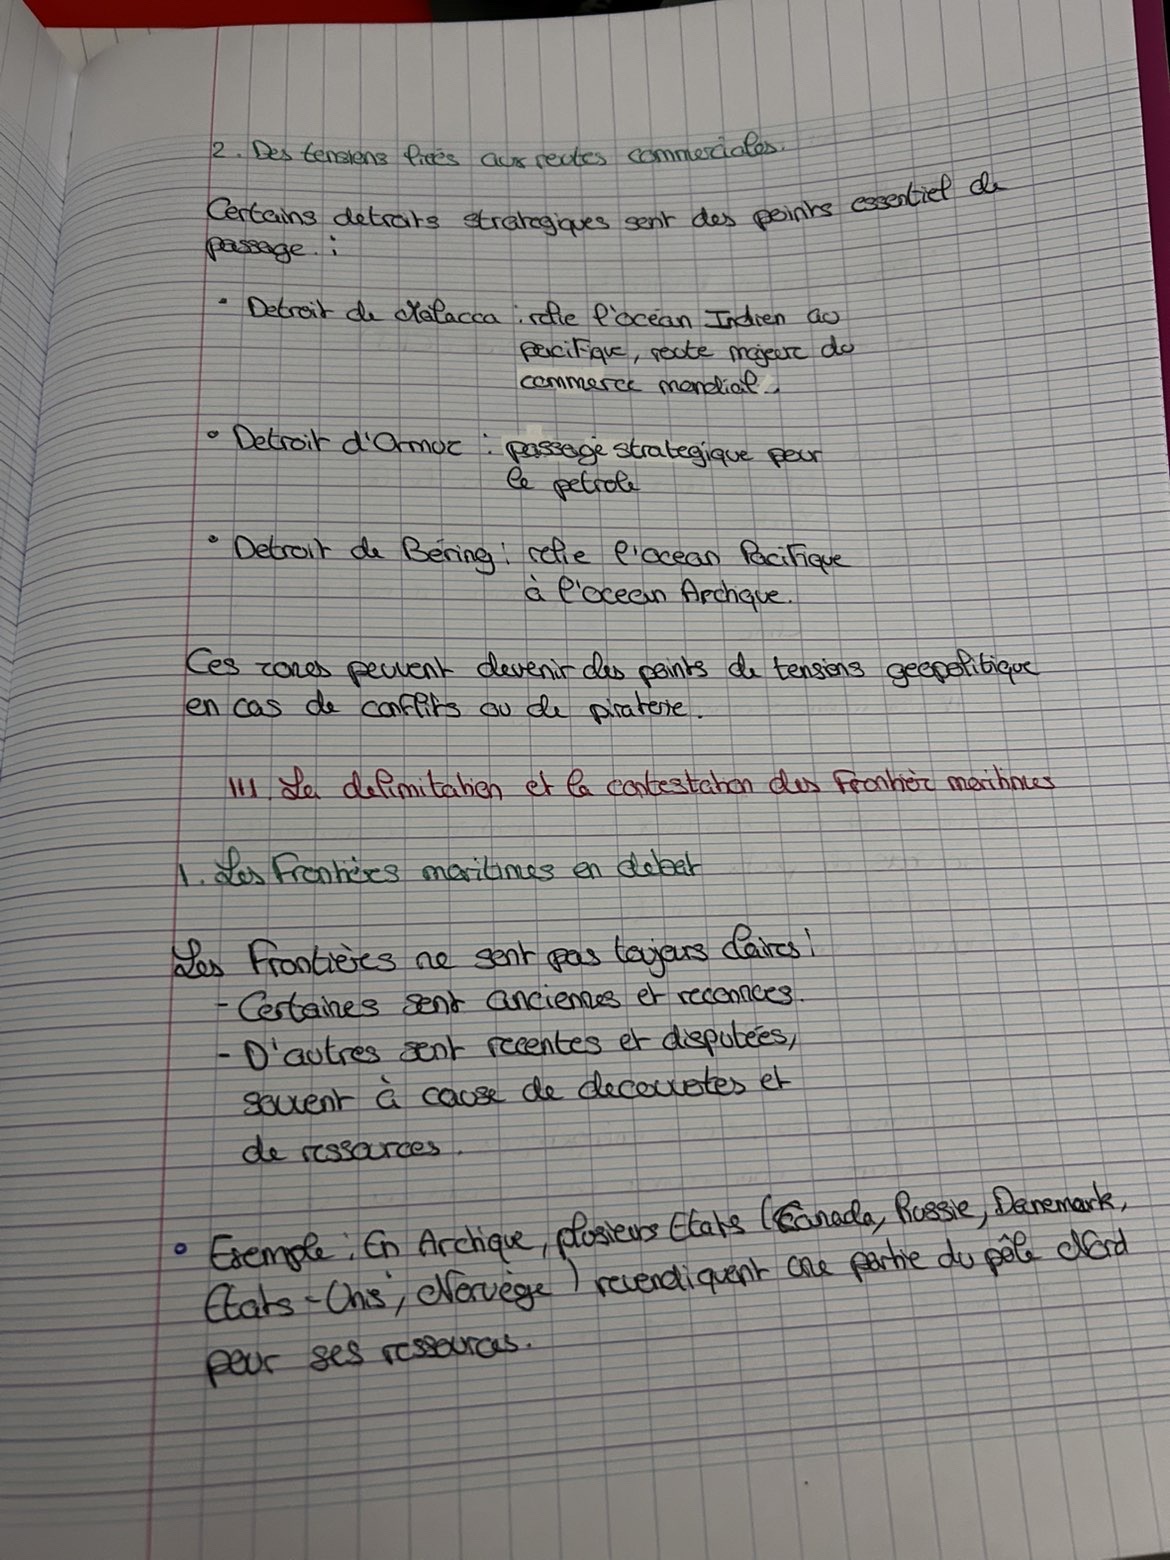 2. Des tensions liées aux routes commerciales.
Certains detroits strategiques sont des points essentiel de
passage :
• Detroit de Malacca : relie l'océan Indien au
pacifique, route majeure du
commerce mondial.
• Detroit d'Ormuz : passage strategique pour
le petrole
• Detroit de Béring : relie l'ocean Pacifique
à l'ocean Arctique.
Ces zones peuvent devenir des points de tensions geopolitique
en cas de conflits ou de piraterie.
III. La delimitation et la contestation des Frontièr maritimes
1. Les Frontières maritimes en debat
Les Frontières ne sont pas toujours claires :
- Certaines sont anciennes et reconnues.
- D'autres sont recentes et disputées,
souvent à cause de decouvertes et
de ressources.
• Exemple : En Arctique, plusieurs Etats (Canada, Russie, Danemark,
Etats-Unis, Norvège) revendiquent une partie du pôle Nord
pour ses ressources.